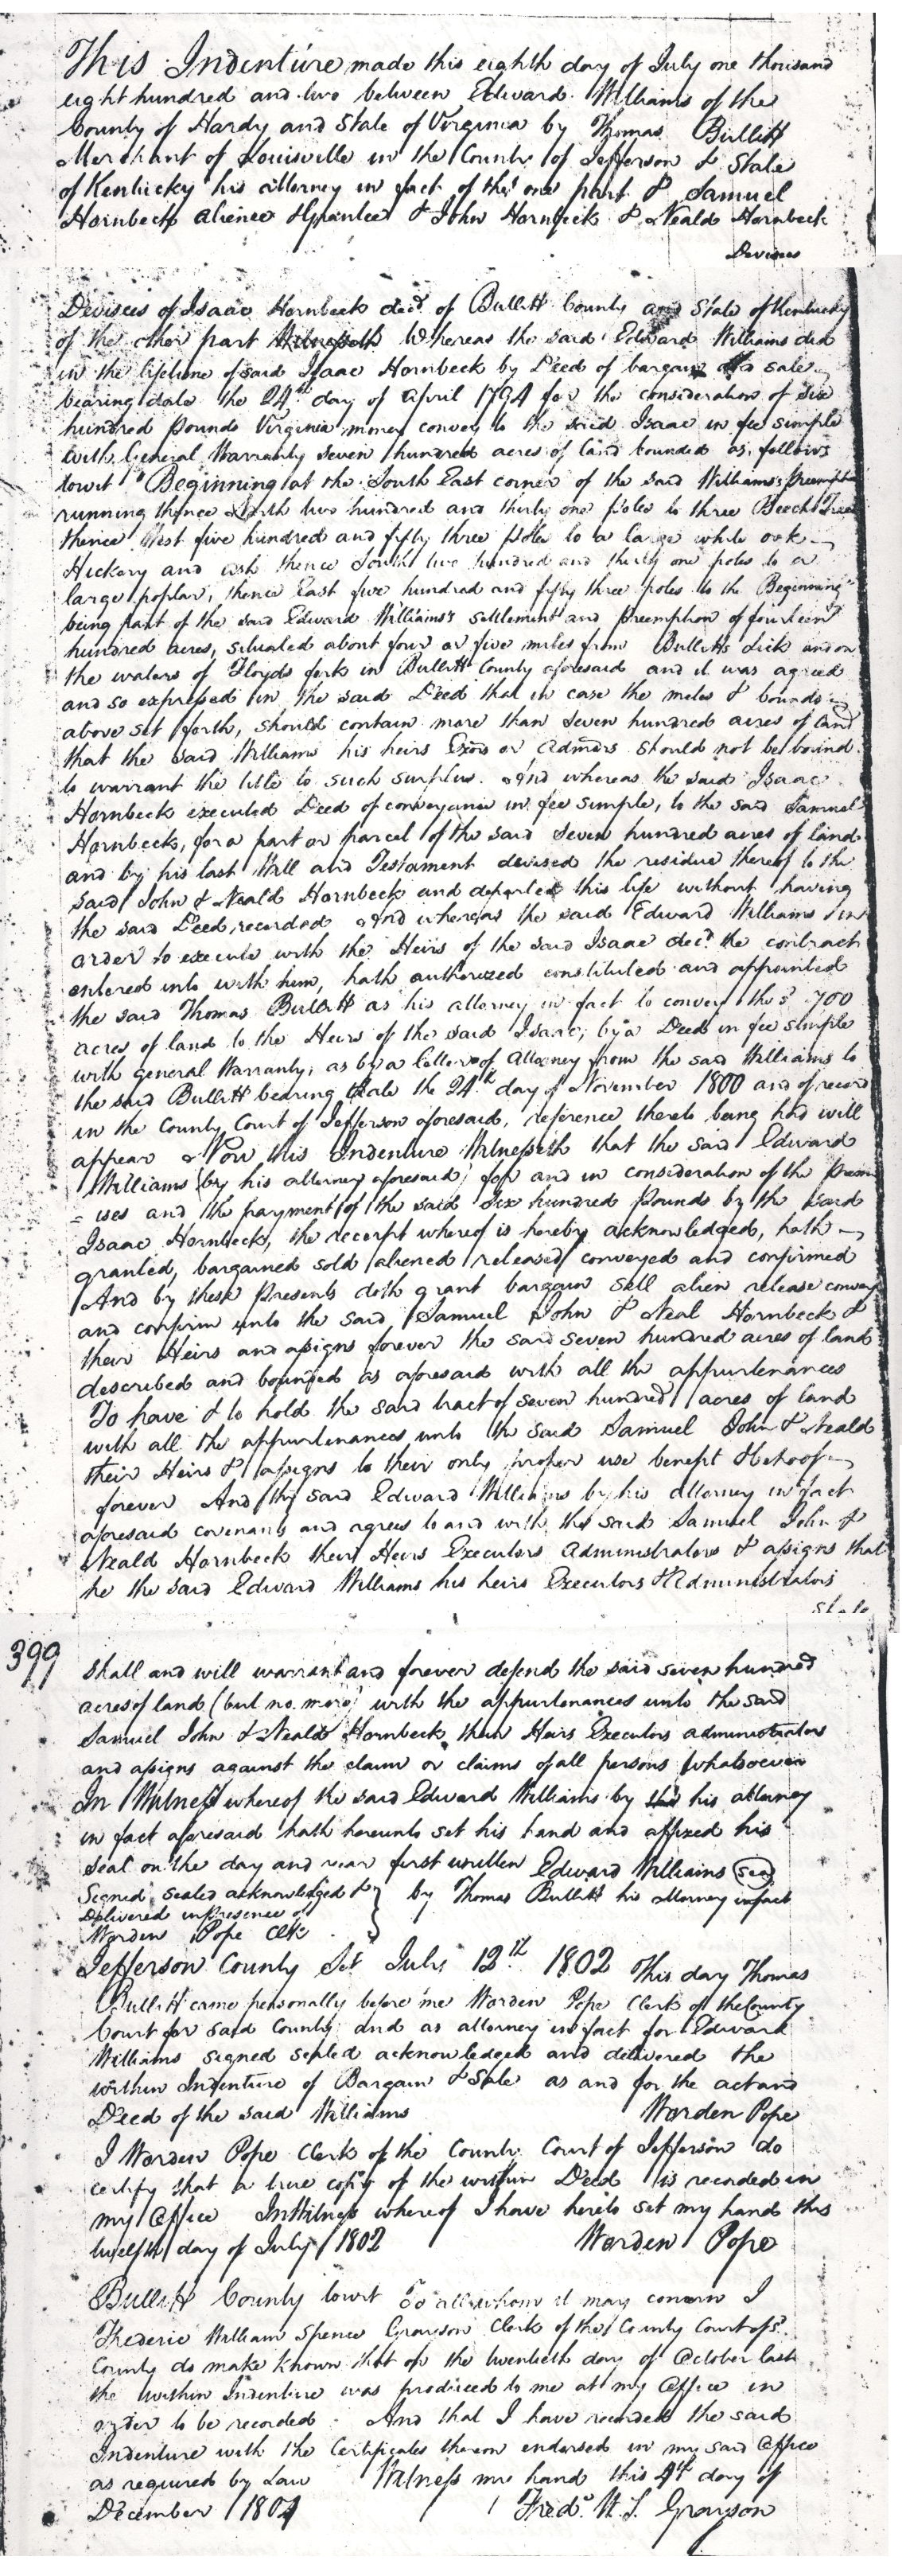 This Indenture made this eighth day of July one thousand
eight hundred and two between Edward Williams of the
County of Hardy and State of Virginia by Thomas Bullitt
Merchant of Louisville in the County of Jefferson & State
of Kentucky his attorney in fact of the one part & Samuel
Hornbeck alienee & Grantee & John Hornbeck & Neald Hornbeck
Devisees
Devisees of Isaac Hornbeck decd. of Bullitt County and State of Kentucky
of the other part Witnesseth Whereas the said Edward Williams did
in the lifetime of said Isaac Hornbeck by Deed of bargain and sale
bearing date the 24th day of April 1794 for the consideration of six
hundred pounds Virginia money convey to the said Isaac in fee simple
with General Warranty seven hundred acres of land bounded as follows
towit "Beginning at the South East corner of the said Williams's Preemption
running thence North two hundred and thirty one poles to three Beech Trees
thence West five hundred and fifty three poles to a large white oak
Hickory and ash thence South two hundred and thirty one poles to a
large poplar, thence East five hundred and fifty three poles to the Beginning"
being part of the said Edward Williams's settlement and Preemption of fourteen
hundred acres, situated about four or five miles from Bullitts Lick and on
the waters of Floyds fork in Bullitt County aforesaid and it was agreed
and so expressed in the said Deed that in case the metes & bounds
above set forth, should contain more than seven hundred acres of land
that the said Williams his heirs Exors or Admors should not be bound
to warrant the title to such surplus. And whereas the said Isaac
Hornbeck executed Deed of conveyance in fee simple, to the said Samuel
Hornbeck, for a part or parcel of the said seven hundred acres of land
and by his last Will and Testament devised the residue thereof to the
said John & Neald Hornbeck and departed this life without having
the said Deed recorded And whereas the said Edward Williams in
order to execute with the Heirs of the said Isaac decd. the contract
entered into with him, hath authorized constituted and appointed
the said Thomas Bullitt as his attorney in fact to convey the sd. 700
acres of land to the Heirs of the said Isaac, by a Deed in fee simple
with general Warranty, as by a letter of Attorney from the said Williams to
the said Bullitt bearing date the 24th day of November 1800 and of record
in the County Court of Jefferson aforesaid, reference thereto being had will
appear Now this Indenture Witnesseth that the said Edward
Williams (by his attorney aforesaid) for and in consideration of the prem
= ises and the payment of the said six hundred pounds by the said
Isaac Hornbeck, the receipt whereof is hereby acknowledged, hath
granted, bargained sold aliened released conveyed and confirmed
And by these Presents doth grant bargain sell alien release convey
and confirm unto the said Samuel John & Neal Hornbeck &
their Heirs and assigns forever the said seven hundred acres of land
described and bounded as aforesaid with all the appurtenances
To have & to hold the said tract of seven hundred acres of land
with all the appurtenances unto the said Samuel John & Neald
their Heirs & assigns to their only proper use benefit & behoof
forever And the said Edward Williams by his attorney in fact
aforesaid covenants and agrees to and with the said Samuel John &
Neald Hornbeck their Heirs Executors administrators & assigns that
he the said Edward Williams his heirs Executors & Administrators
399
shall and will warrant and forever defend the said seven hundred
acres of land (but no more) with the appurtenances unto the said
Samuel John & Neald Hornbeck their Heirs Executors administrators
and assigns against the claim or claims of all persons whatsoever
In Witness whereof the said Edward Williams by his attorney
in fact aforesaid hath hereunto set his hand and affixed his
seal on the day and year first written Edward Williams Seal
Signed sealed acknowledged & } by Thomas Bullitt his attorney in fact
Delivered in presence of
Worden Pope Clk
Jefferson County Sct July 12th 1802 This day Thomas
Bullitt came personally before me Worden Pope Clerk of the County
Court for said County and as attorney in fact for Edward
Williams signed sealed acknowledged and delivered the
within Indenture of Bargain & Sale as and for the act and
Deed of the said Williams Worden Pope
I Worden Pope Clerk of the County Court of Jefferson do
certify that a true copy of the within Deed is recorded in
my Office In Witness whereof I have hereto set my hand this
twelfth day of July 1802 Worden Pope
Bullitt County Court To all whom it may concern I
Frederic William Spence Grayson Clerk of the County Court of sd.
County do make known that on the twentieth day of October last
the within Indenture was produced to me at my Office in
order to be recorded And that I have recorded the said
Indenture with the Certificates thereon endorsed in my said Office
as required by Law Witness my hand this 4th day of
December Fred. W. S. Grayson